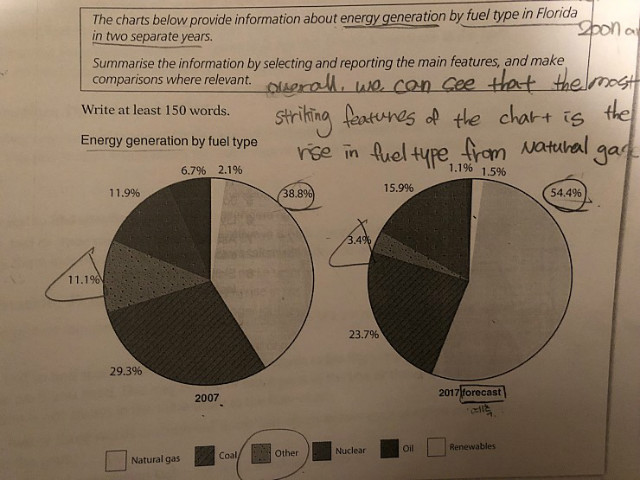 The charts below provide information about energy generation by fuel type in Florida
in two separate years.
Soon
Summarise the information by selecting and reporting the main features, and make
comparisons where relevant.
overall, we can see that the most
Write at least 150 words.
striking features of the chart is the
Energy generation by fuel type
rise in fuel type from Natural gas
6.7% 2.1%
11.9%
38.8%
11.1%
29.3%
2007
1.1% 1.5%
15.9%
54.4%
3.4%
23.7%
2017 forecast
Natural gas Coal Other Nuclear Oil Renewables